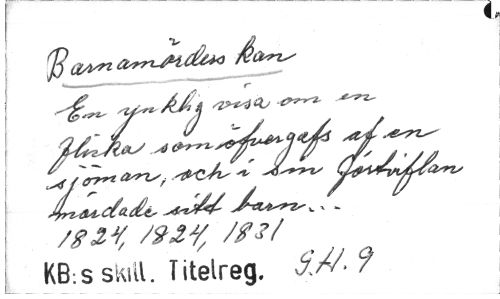 Barnamörderskan
En ynklig visa om en
flicka som öfvergafs af en
sjöman, och i sin förtviflan
mördade sitt barn...
1824, 1824, 1831
KB:s skill. Titelreg. G.H. 9